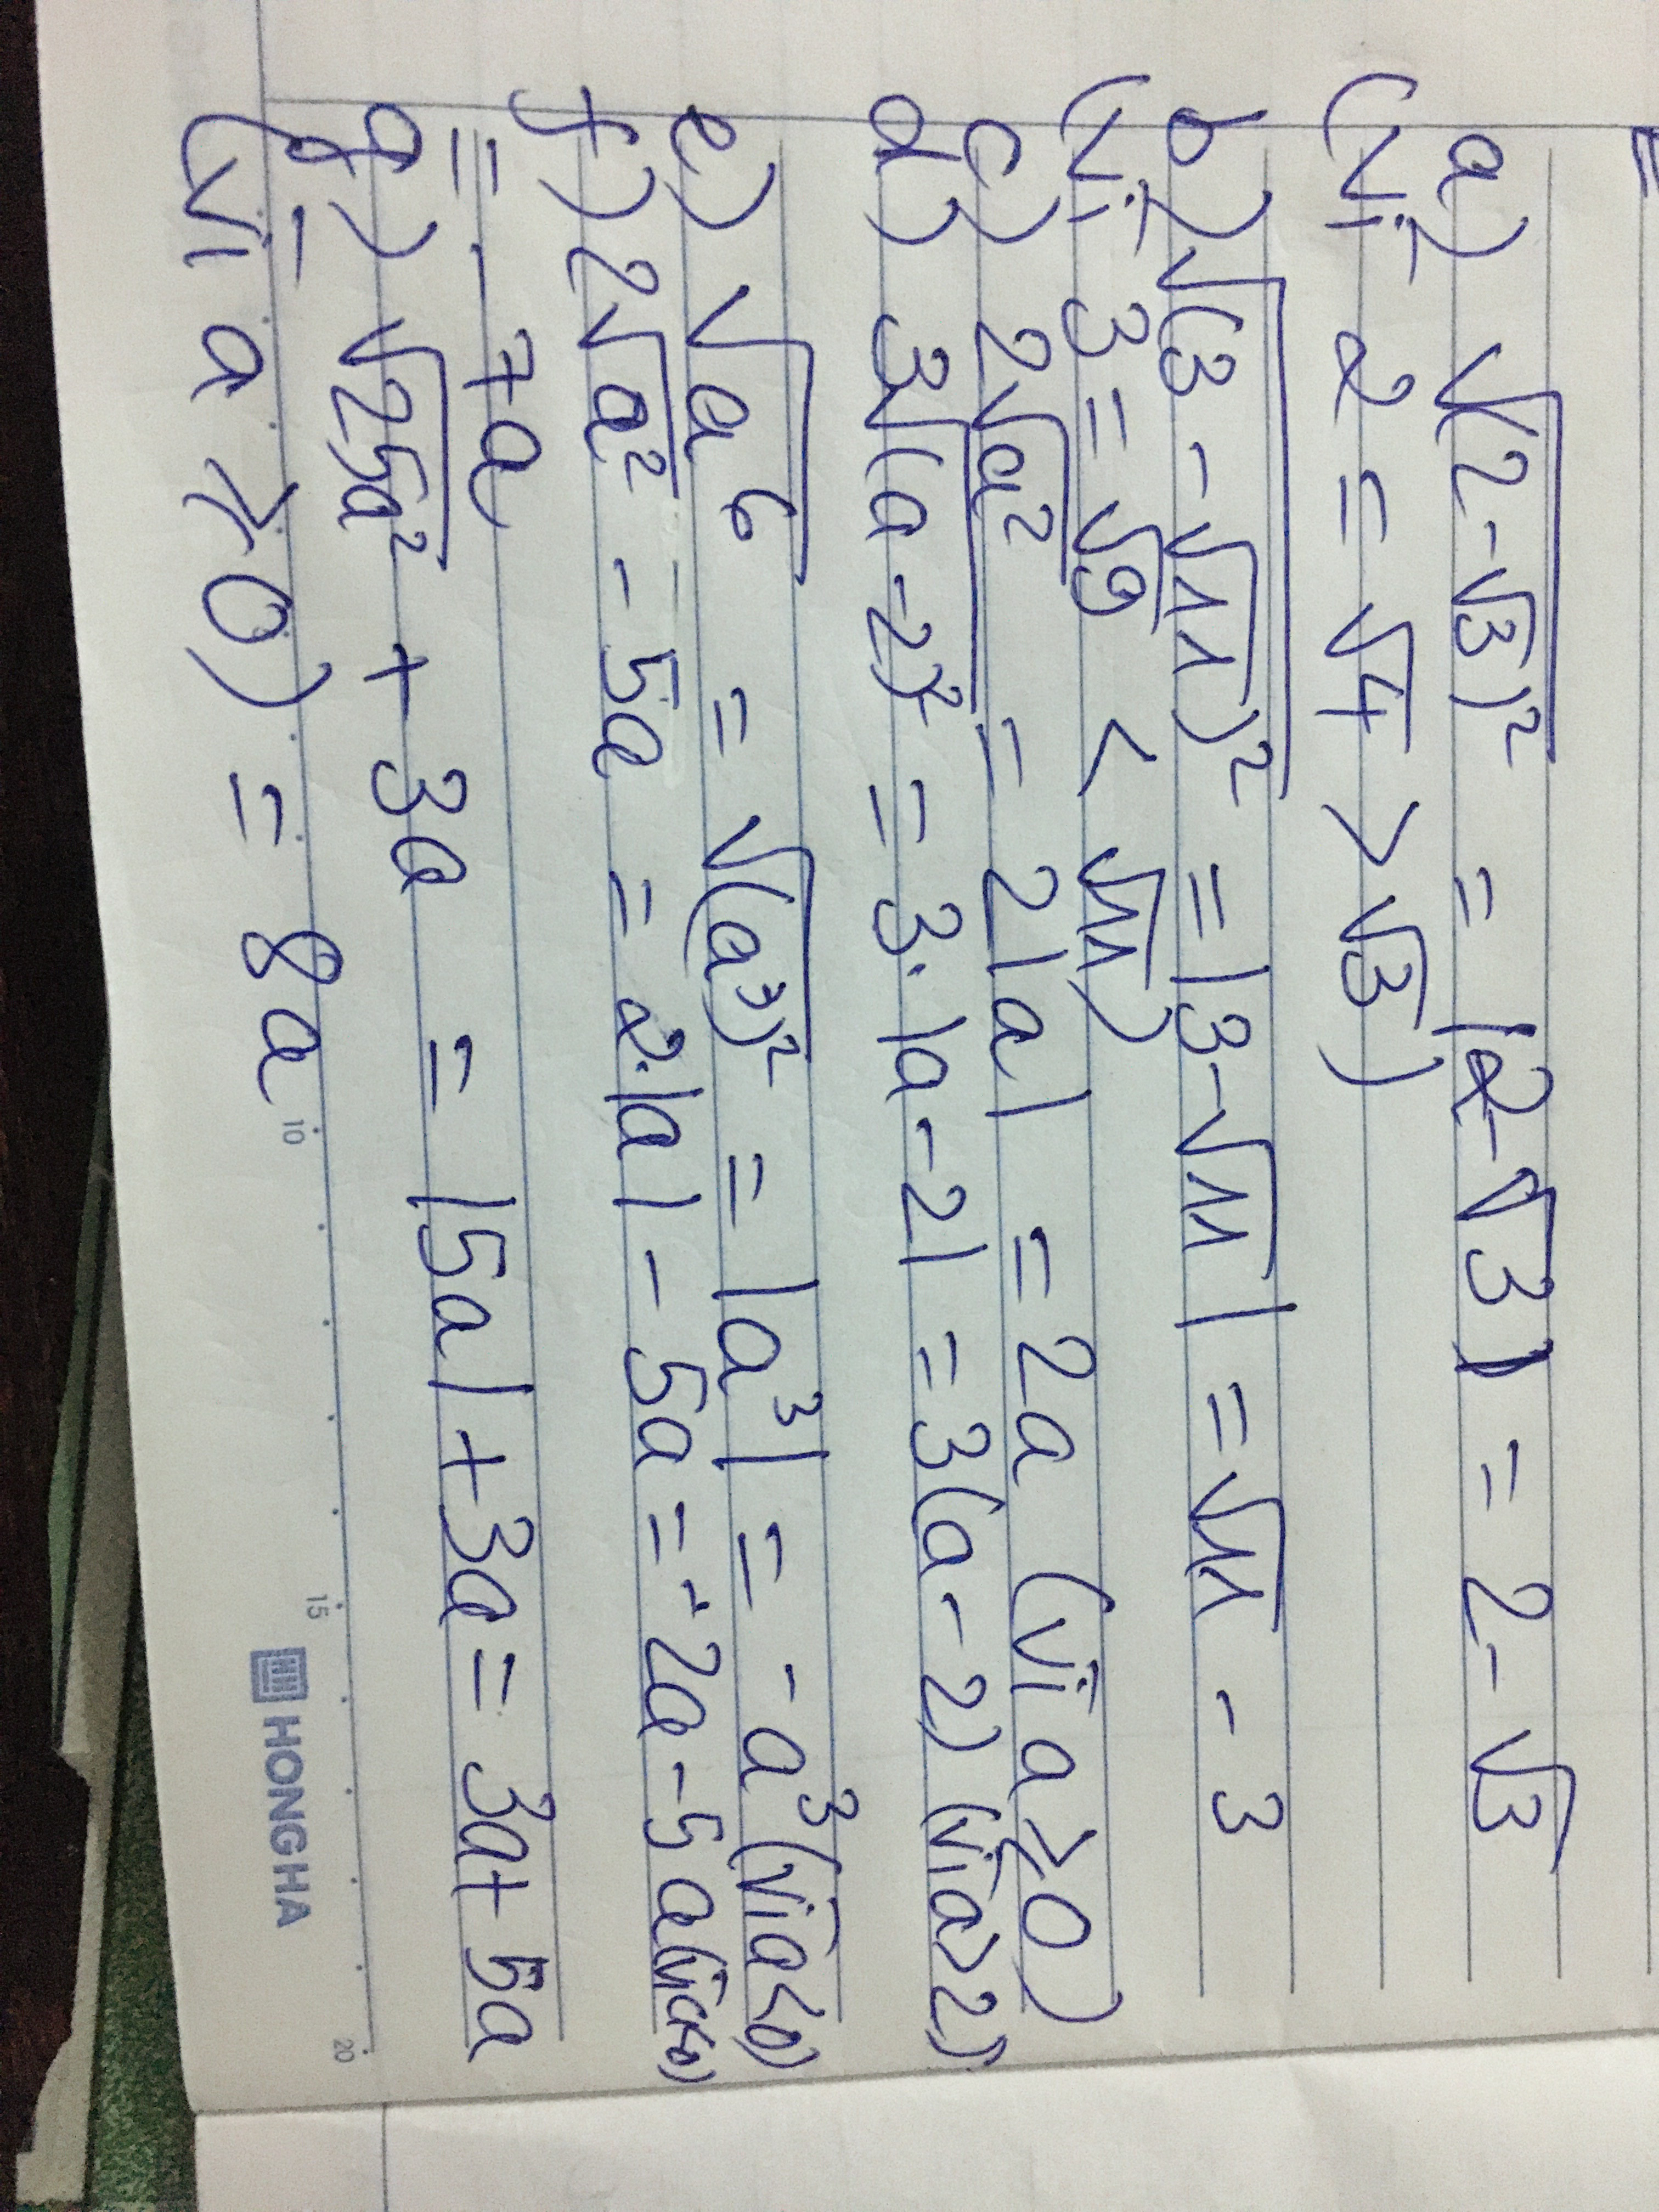 a) √(2-√3)² = |2-√3| = 2-√3
(Vì 2 = √4 > √3)
b) √(3-√11)² = |3-√11| = √11 - 3
(Vì 3 = √9 < √11)
c) 2√a² = 2|a| = 2a (Vì a ≥ 0)
d) 3√(a-2)² = 3.|a-2| = 3(a-2) (Vì a>2)
e) √a⁶ = √(a³)² = |a³| = -a³ (Vì a<0)
f) 2√a² - 5a = 2.|a| - 5a = -2a - 5a (Vì a<0)
= -7a
g) √25a² + 3a = |5a| + 3a = 3a + 5a
(Vì a ≥ 0) = 8a
10 15 20
HONG HA